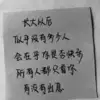 长大以后
似乎没有多少人
会在乎你是否快乐
所有人都只看你
有没有出息